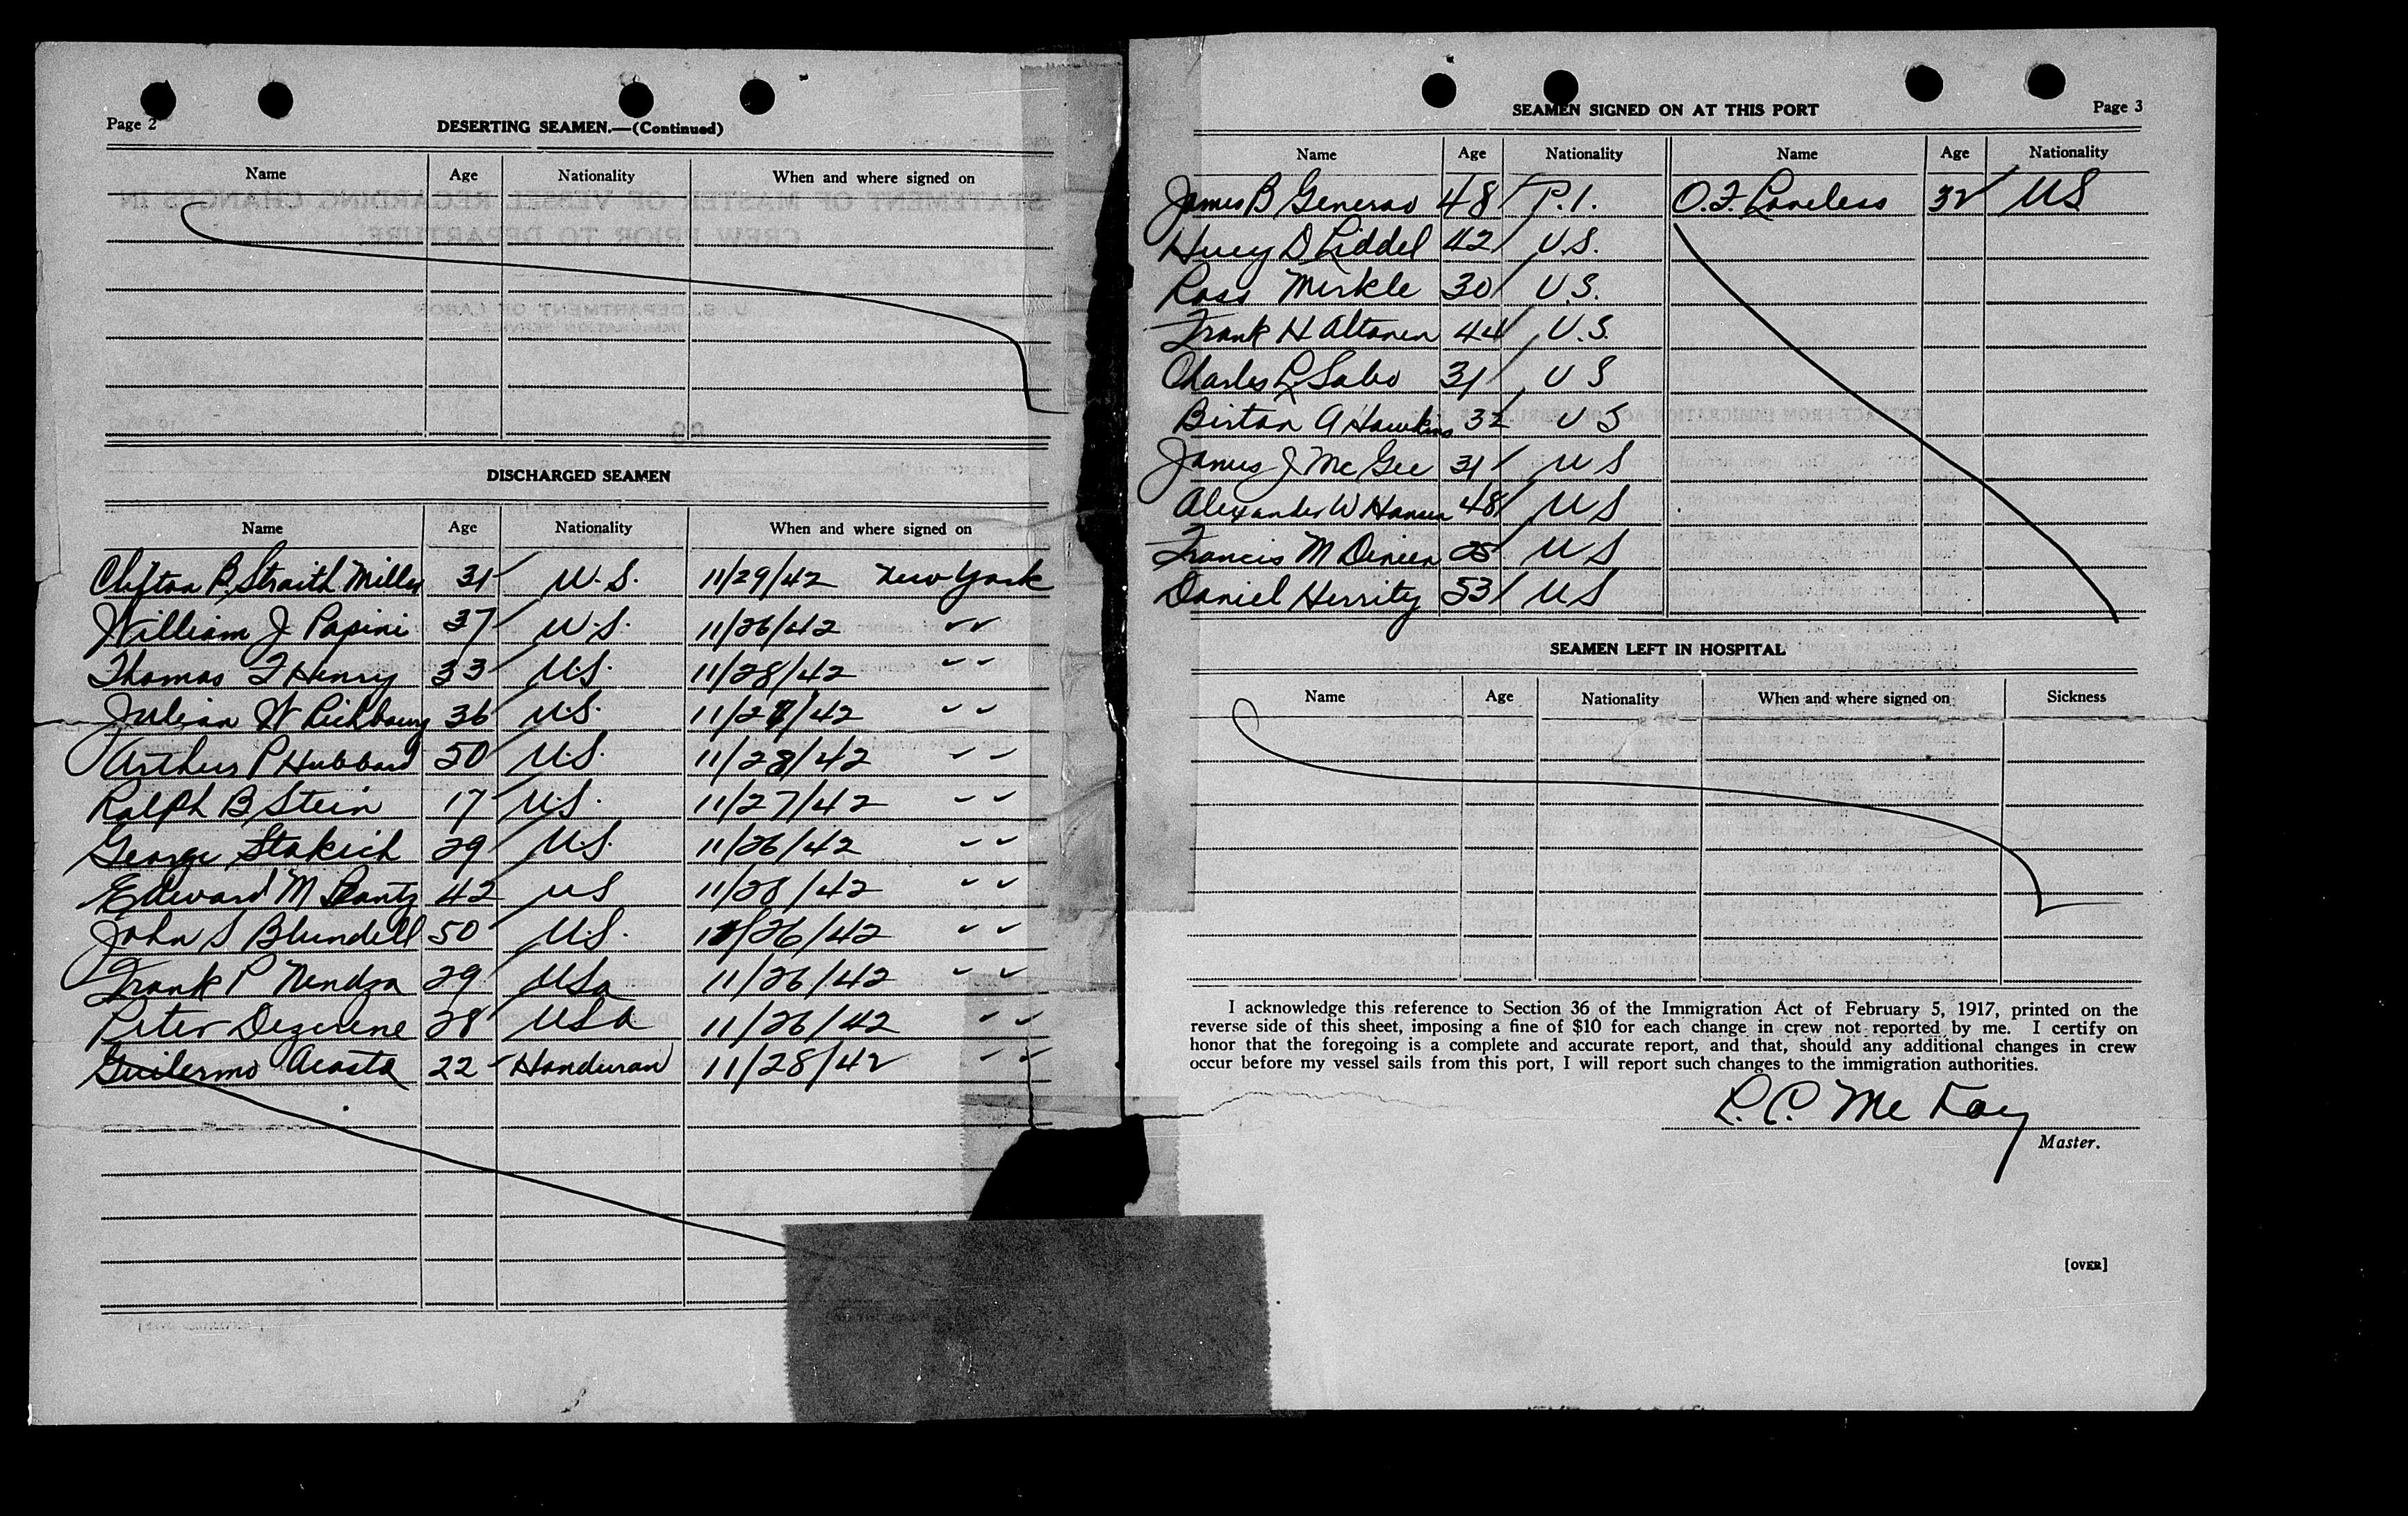 Page 2
DESERTING SEAMEN.—(Continued)
Name Age Nationality When and where signed on
DISCHARGED SEAMEN
Name Age Nationality When and where signed on
Clifton B. Straith Miller 31 U.S. 11/29/42 New York
William J Papini 37 U.S. 11/26/42 " "
Thomas F Henry 33 U.S. 11/28/42 " "
Julian W Richbourg 36 U.S. 11/27/42 " "
Arthur P Hubbard 50 U.S. 11/28/42 " "
Ralph B Stein 17 U.S. 11/27/42 " "
George Stakich 29 U.S. 11/26/42 " "
Edward M 42 US 11/28/42 " "
John S Blundell 50 U.S. 11/26/42 " "
Frank P Nendza 29 USA 11/26/42 " "
Peter 28 USA 11/26/42 " "
Guilermo Acosta 22 Honduran 11/28/42 " "
SEAMEN SIGNED ON AT THIS PORT
Page 3
Name Age Nationality Name Age Nationality
James B Generao 48 P.I. O.F. Loveless 32 US
Huey D Liddel 42 U.S.
Ross Merkle 30 U.S.
Frank H Altonen 44 U.S.
Charles L Sabo 31 U S
Birton A Hawkins 32 U S
James J McGee 31 US
Alexander W Hansen 48 US
Francis M Dineen 25 US
Daniel Herrity 53 US
SEAMEN LEFT IN HOSPITAL
Name Age Nationality When and where signed on Sickness
I acknowledge this reference to Section 36 of the Immigration Act of February 5, 1917, printed on the
reverse side of this sheet, imposing a fine of $10 for each change in crew not reported by me. I certify on
honor that the foregoing is a complete and accurate report, and that, should any additional changes in crew
occur before my vessel sails from this port, I will report such changes to the immigration authorities.
R. C. McKay
Master.
[OVER]